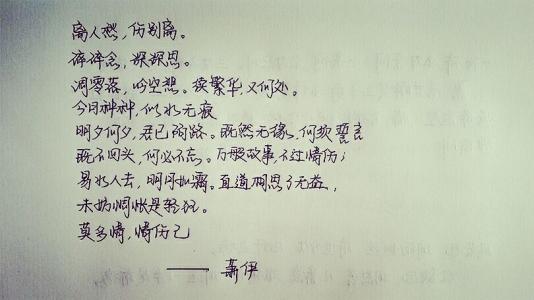 离人愁，伤别离。
碎碎念，深深思。
凋零落，吟空想。候繁华又何处。
今月种种，似水无痕
明夕何夕，君已陌路。既然无缘，何须誓言
既不回头，何必不忘。万般故事，不过情伤；
易水人去，明月如霜。直道相思了无益，
未妨惆怅是轻狂。
莫多情，情伤己
—— 萧伊